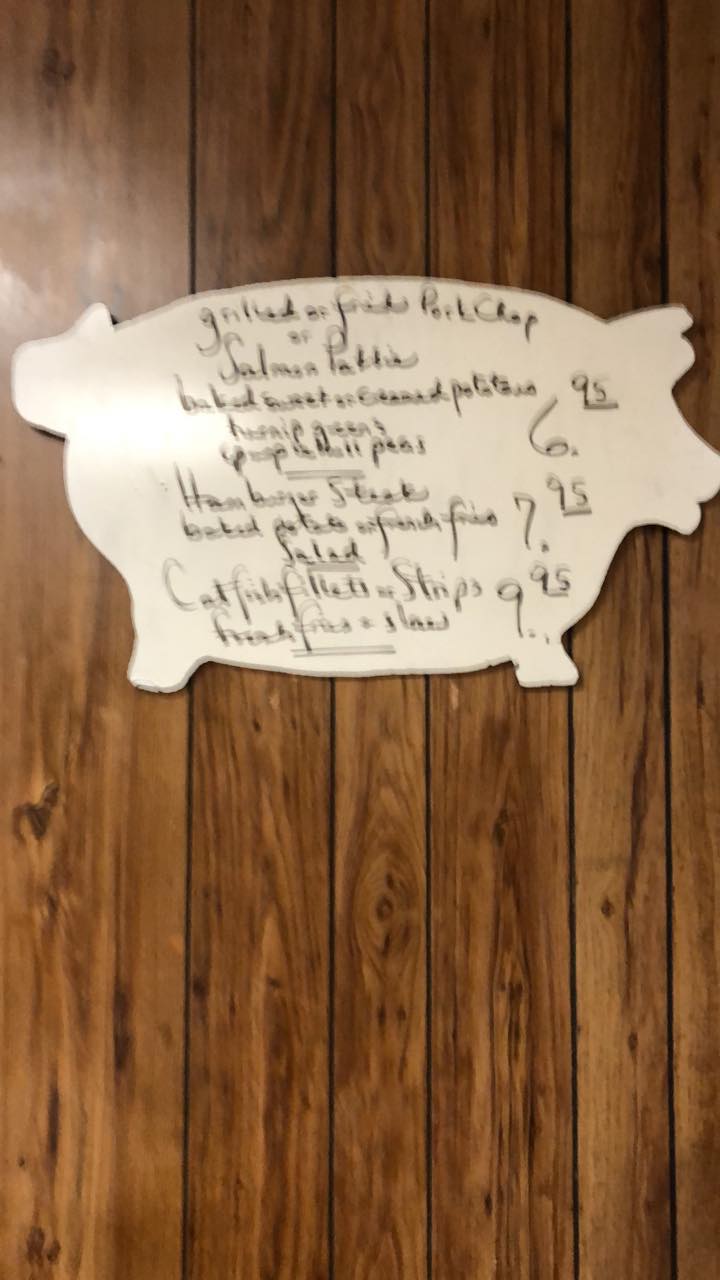 grilled or fried Pork Chop
or
Salmon Pattie
baked sweet or creamed potatoes 6.95
turnip greens
purple hull peas
Hamburger Steak
baked potato or french fries 7.95
Salad
Catfish fillets or Strips 9.95
french fries & slaw